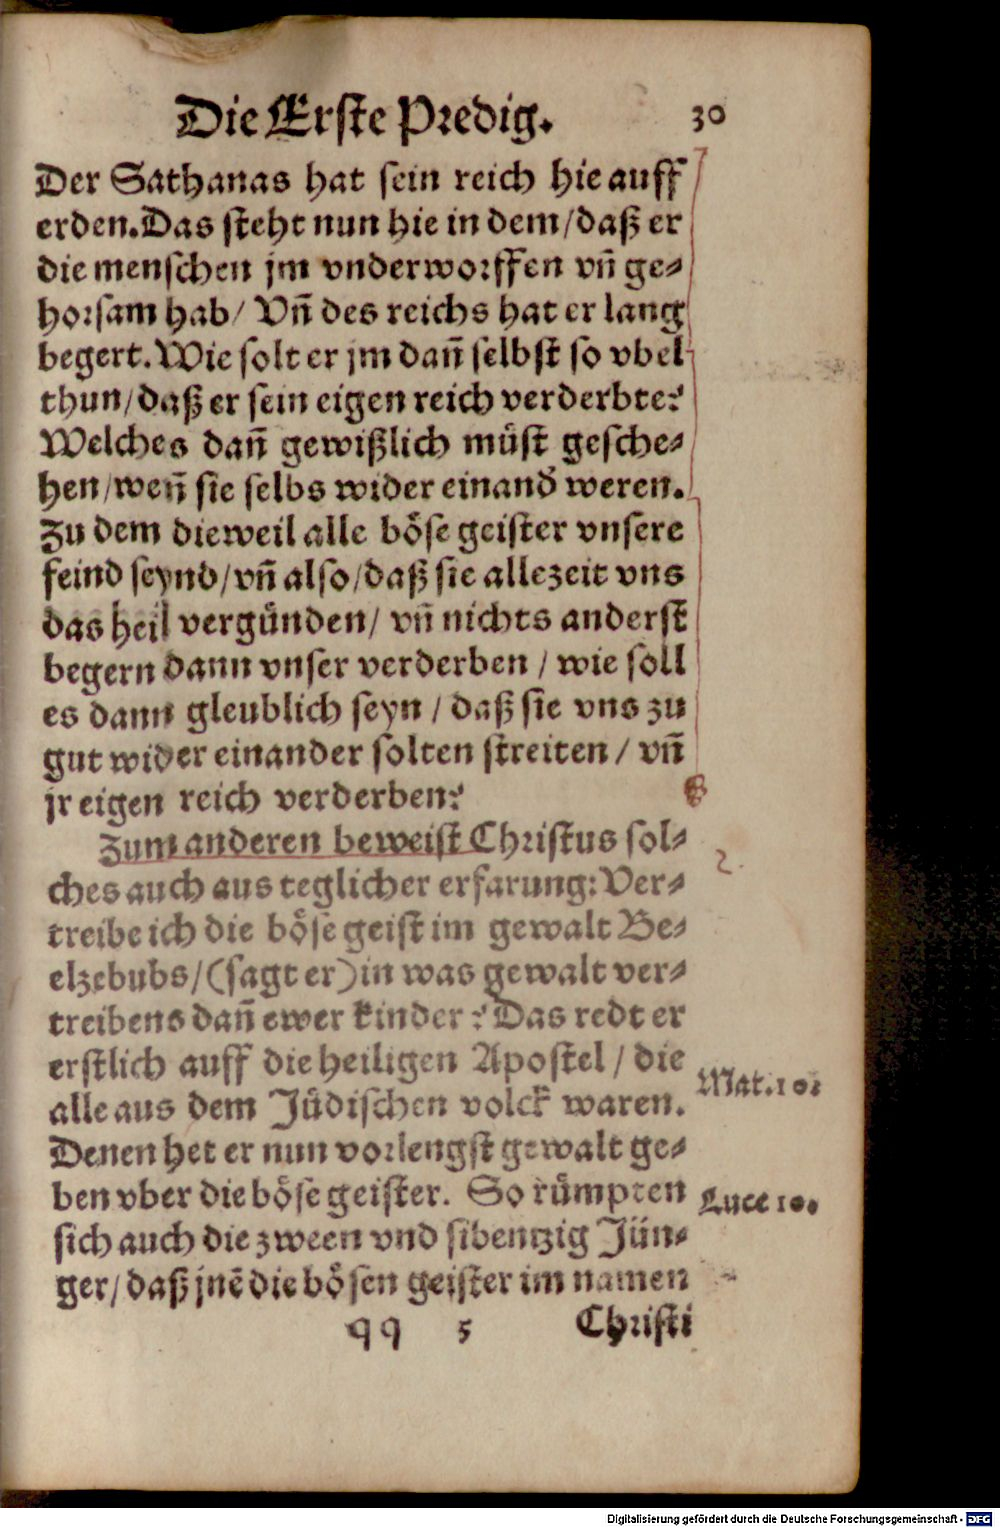 Die Erste Predig. 30
Der Sathanas hat sein reich hie auff
erden. Das steht nun hie in dem/ daß er
die menschen jm vnderworffen vñ ge-
horsam hab/ Vñ des reichs hat er lang
begert. Wie solt er jm dañ selbst so vbel
thun/ daß er sein eigen reich verderbte?
Welches dañ gewißlich müst gesche-
hen/ weñ sie selbs wider einand' weren.
Zu dem dieweil alle böse geister vnsere
feind seynd/ vñ also/ daß sie allezeit vns
das heil vergünden/ vñ nichts anderst
begern dann vnser verderben / wie soll
es dann gleublich seyn / daß sie vns zu
gut wider einander solten streiten / vñ
jr eigen reich verderben?
Zum anderen beweist Christus sol-
ches auch aus teglicher erfarung: Ver-
treibe ich die böse geist im gewalt Be-
elzebubs/ (sagt er) in was gewalt ver-
treibens dañ ewer kinder? Das redt er
erstlich auff die heiligen Apostel / die
Mat. 10.
alle aus dem Jüdischen volck waren.
Denen het er nun vorlengst gewalt ge-
ben vber die böse geister. So rümpten
Luce 10.
sich auch die zween vnd sibentzig Jün-
ger/ daß jnē die bösen geister im namen
qq 5 Christi
2
Digitalisierung gefördert durch die Deutsche Forschungsgemeinschaft - DFG